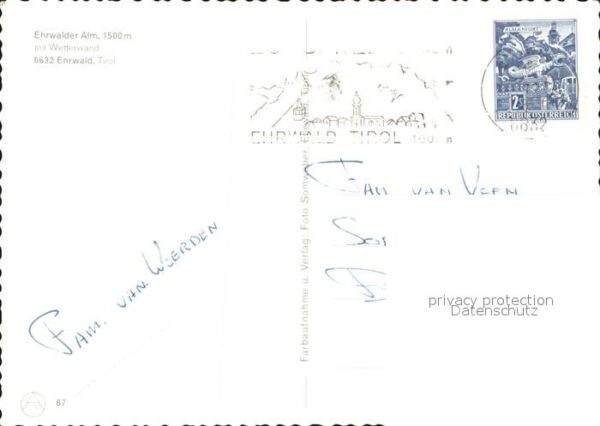 Ehrwalder Alm, 1500m
mit Wetterwand
6632 Ehrwald, Tirol
EHRWALD TIROL 1000m
KLAGENFURT
2S
REPUBLIK ÖSTERREICH
6632
Fam. van Veen
Fam. van Weerden
Farbaufnahme u. Verlag: Foto Somweber, Ehrwald, Tirol
privacy protection
Datenschutz
87